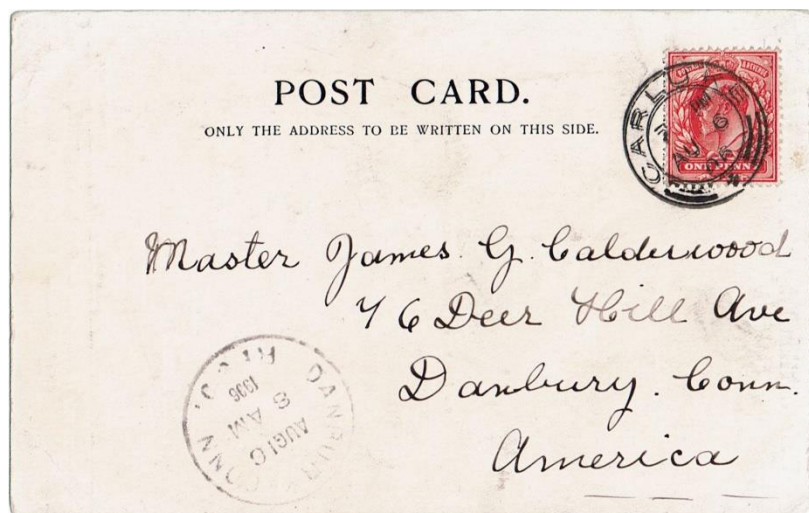 POST CARD.
ONLY THE ADDRESS TO BE WRITTEN ON THIS SIDE.
CARLUKE
AU 6
06
ONE PENNY
Master James. G. Calderwood
76 Deer Hill Ave
Danbury. Conn.
America
DANBURY CONN.
REC'D.
1906
8 AM
AUG 16